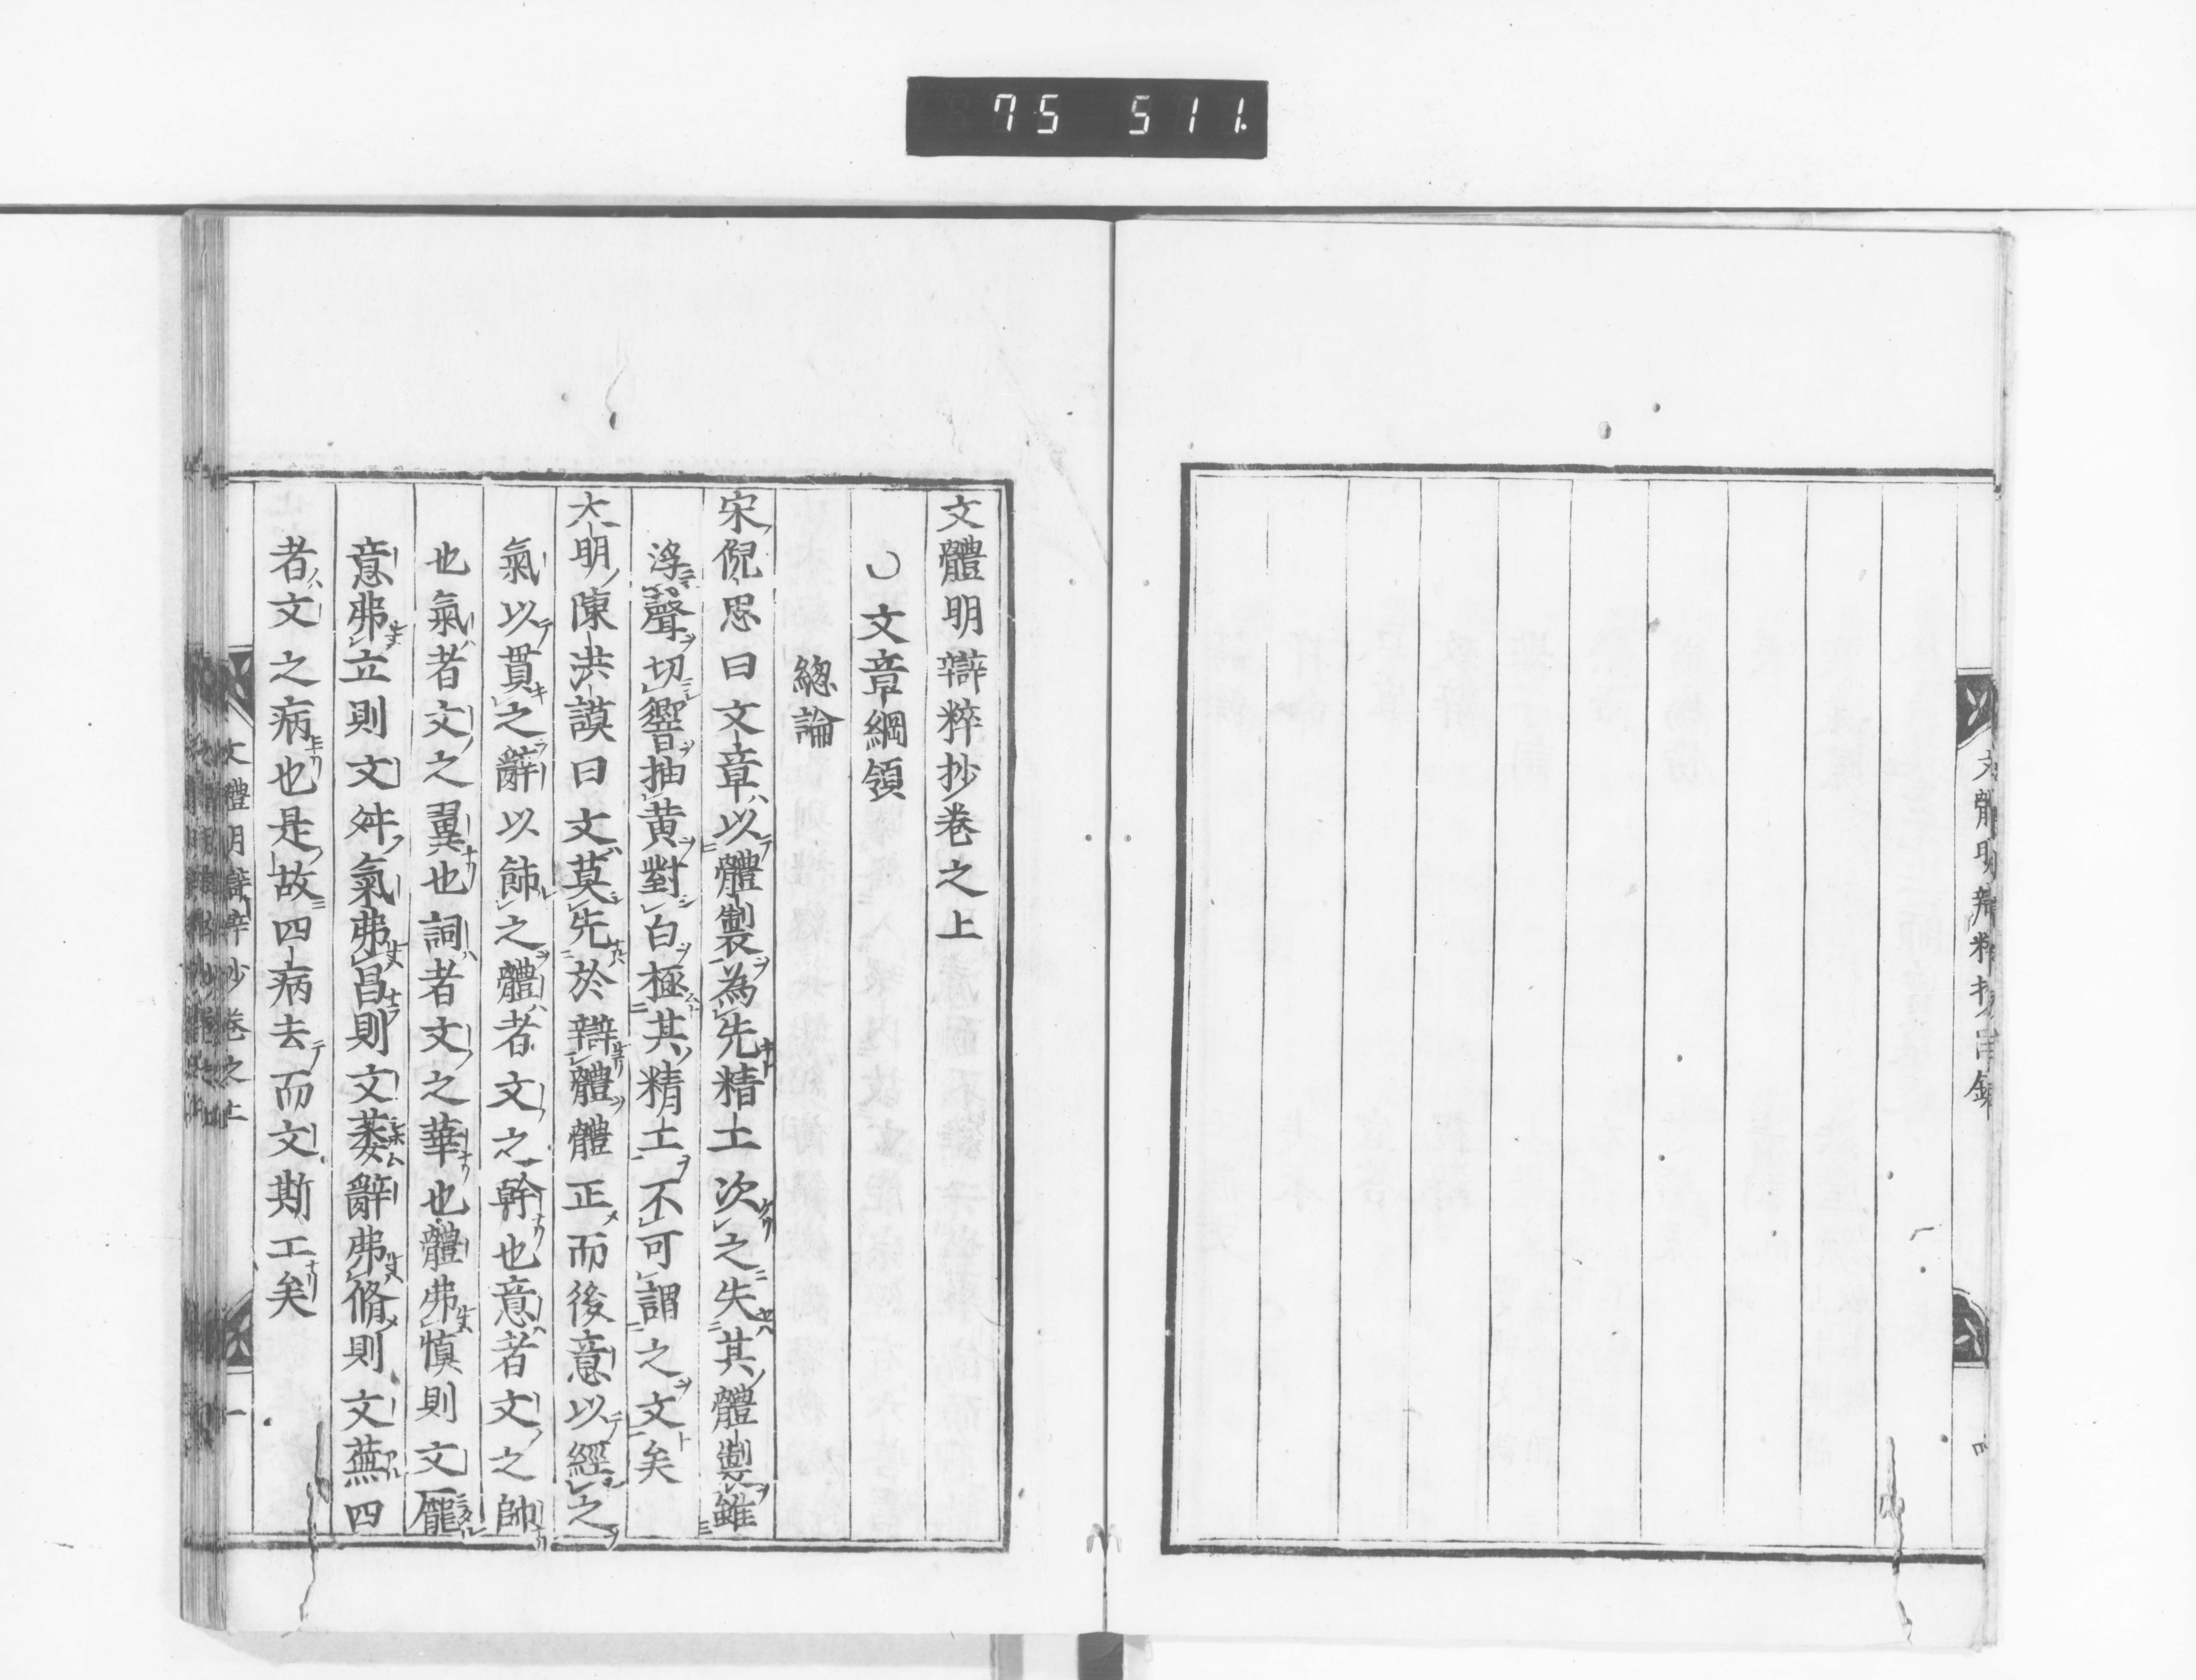 75 511
文體明辯粹抄目錄
文體明辯粹抄卷之上
文章綱領
總論
宋倪思曰文章以體製為先精工次之失其體製雖
浮聲切響抽黄對白極其精工不可謂之文矣
大明陳洪謨曰文莫先於辯體體正而後意以經之
氣以貫之辭以飾之體者文之幹也意者文之帥
也氣者文之翼也詞者文之華也體弗慎則文龐
意弗立則文舛氣弗昌則文萎辭弗脩則文蕪四
者文之病也是故四病去而文斯工矣
文體明辯粹抄卷之上
一